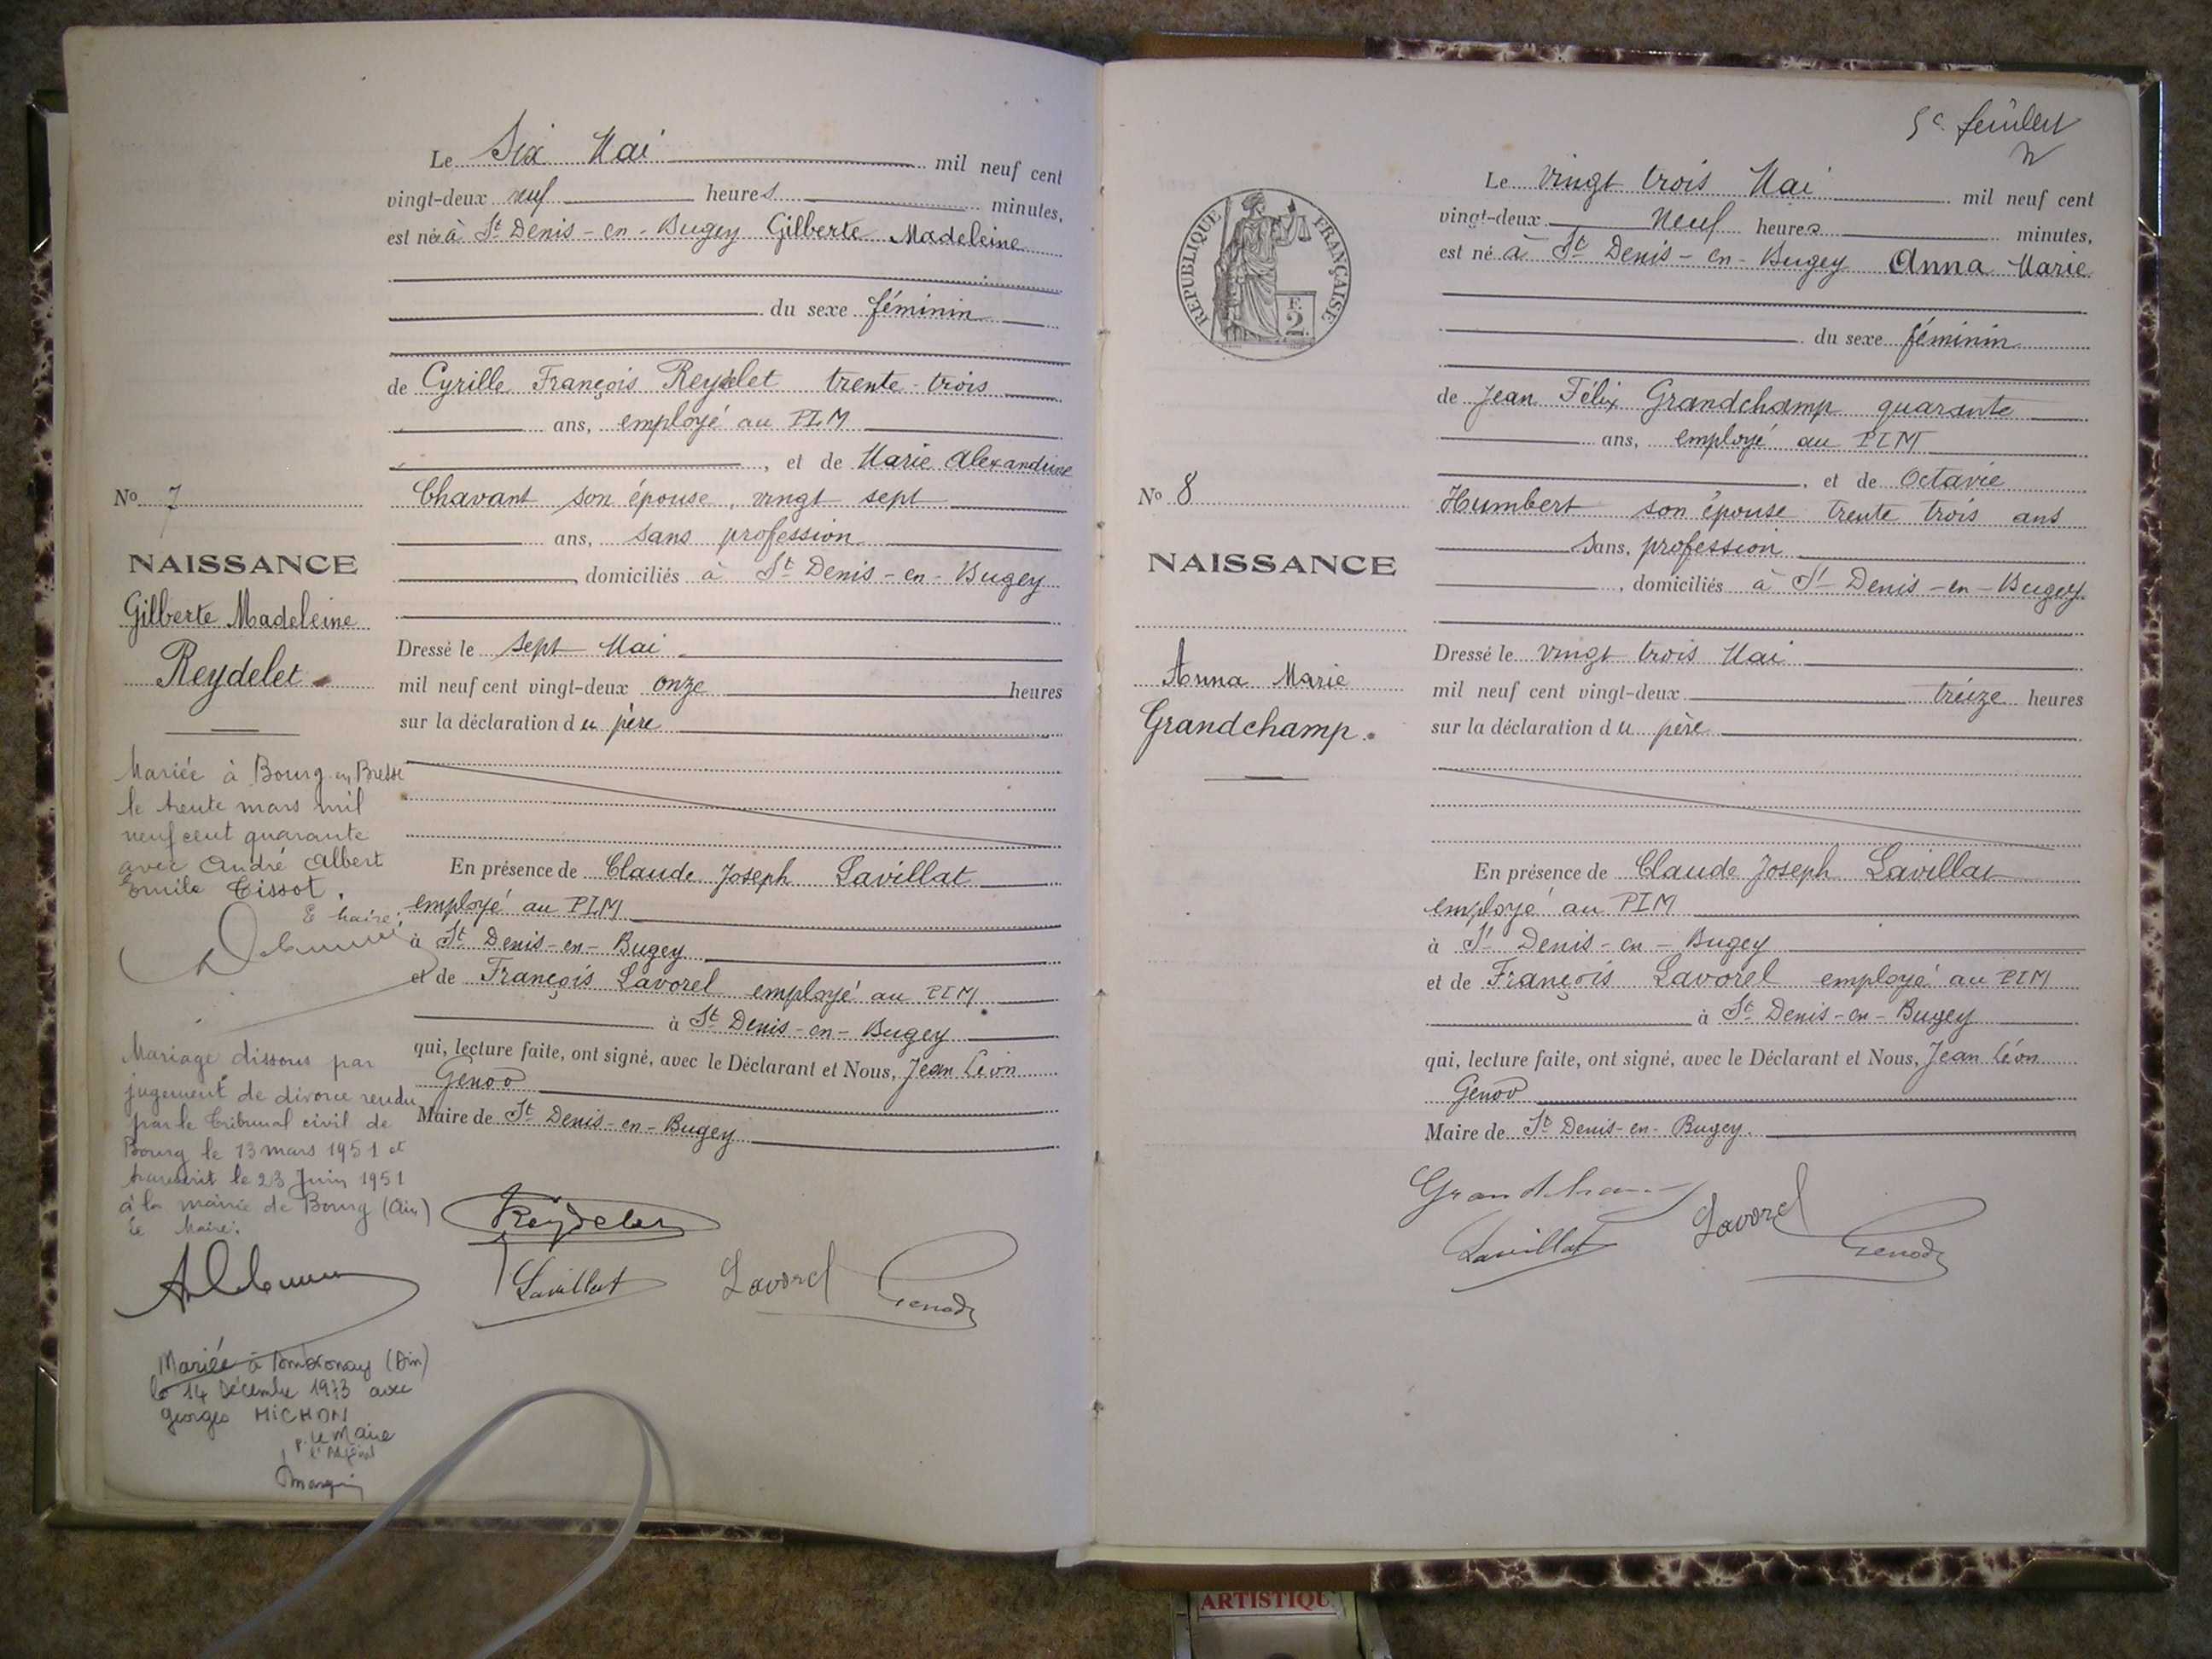 Le Six Mai mil neuf cent
vingt-deux neuf heures minutes,
est née à St Denis-en-Bugey Gilberte Madeleine
du sexe féminin
de Cyrille François Reydelet trente-trois
ans, employé au PLM
, et de Marie Alexandrine
Chavant son épouse, vingt sept
ans, sans profession
, domiciliés à St Denis-en-Bugey
No 7
NAISSANCE
Gilberte Madeleine
Reydelet
Dressé le sept Mai
mil neuf cent vingt-deux onze heures
sur la déclaration du père
Mariée à Bourg en Bresse
le trente mars mil
neuf cent quarante
avec André Albert
Emile Tissot.
Le Maire:
En présence de Claude Joseph Lavillat
employé au PLM
à St Denis-en-Bugey
et de François Lavorel employé au PLM
à St Denis-en-Bugey
qui, lecture faite, ont signé, avec le Déclarant et Nous, Jean Léon
Genod
Maire de St Denis-en-Bugey
Mariage dissous par
jugement de divorce rendu
par le Tribunal civil de
Bourg le 13 mars 1951 et
transcrit le 23 Juin 1951
à la mairie de Bourg (Ain)
Le Maire:
Reydelet
Lavillat Lavorel Genod
Mariée à Ambronay (Ain)
le 14 Décembre 1973 avec
Georges MICHON
p. Le Maire
5e feuillet
REPUBLIQUE FRANÇAISE
E.
2
Le vingt trois Mai mil neuf cent
vingt-deux Neuf heures minutes,
est né à St Denis-en-Bugey Anna Marie
du sexe féminin
de Jean Félix Grandchamp quarante
ans, employé au PLM
, et de Octavie
Humbert son épouse trente trois ans
Sans, profession
, domiciliés à St Denis-en-Bugey
No 8
NAISSANCE
Anna Marie
Grandchamp.
Dressé le vingt trois Mai
mil neuf cent vingt-deux treize heures
sur la déclaration du père
En présence de Claude Joseph Lavillat
employé au PLM
à St Denis-en-Bugey
et de François Lavorel employé au PLM
à St Denis-en-Bugey
qui, lecture faite, ont signé, avec le Déclarant et Nous, Jean Léon
Genod
Maire de St Denis-en-Bugey.
Grandchamp
Lavillat Lavorel Genod
ARTISTIQU